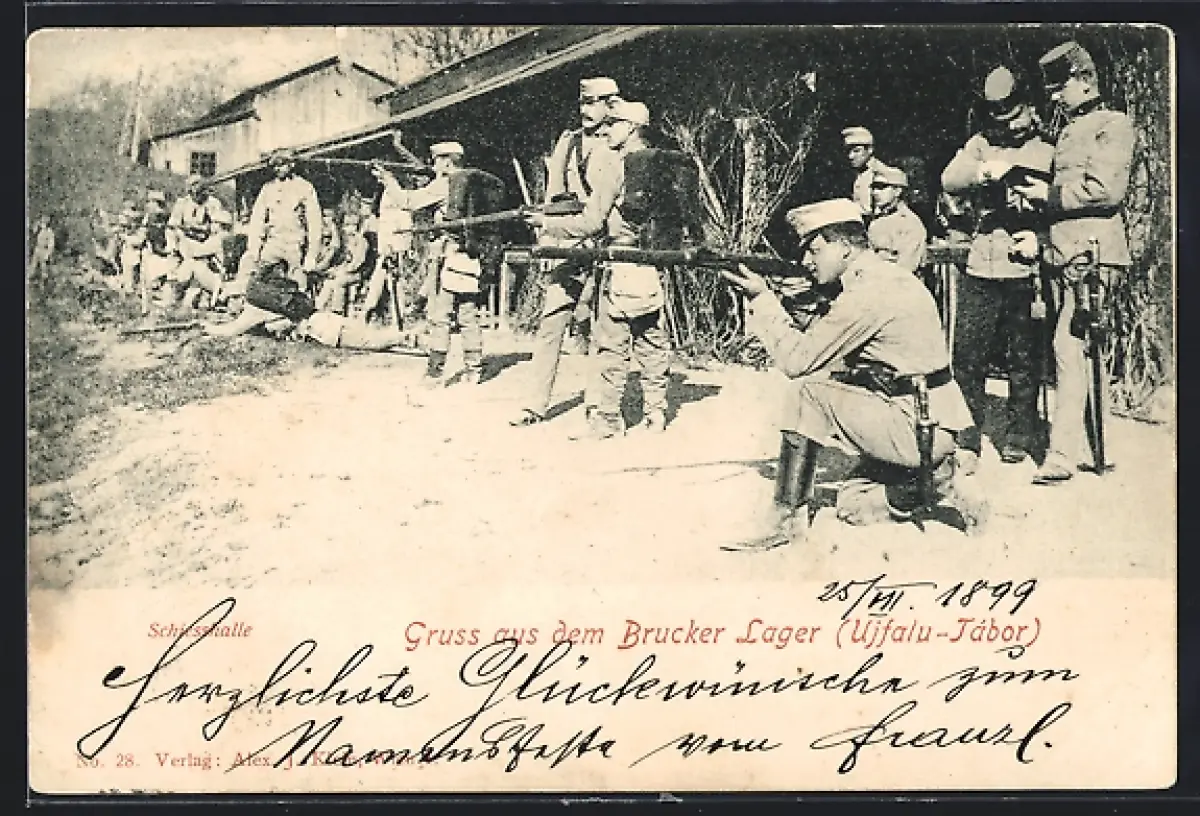 25/VII. 1899
Schiesshalle
Gruss aus dem Brucker Lager (Ujfalu-Tábor)
Herzlichste Glückwünsche zum
Namensfeste vom Franzl.
No. 28. Verlag: Alex. J.